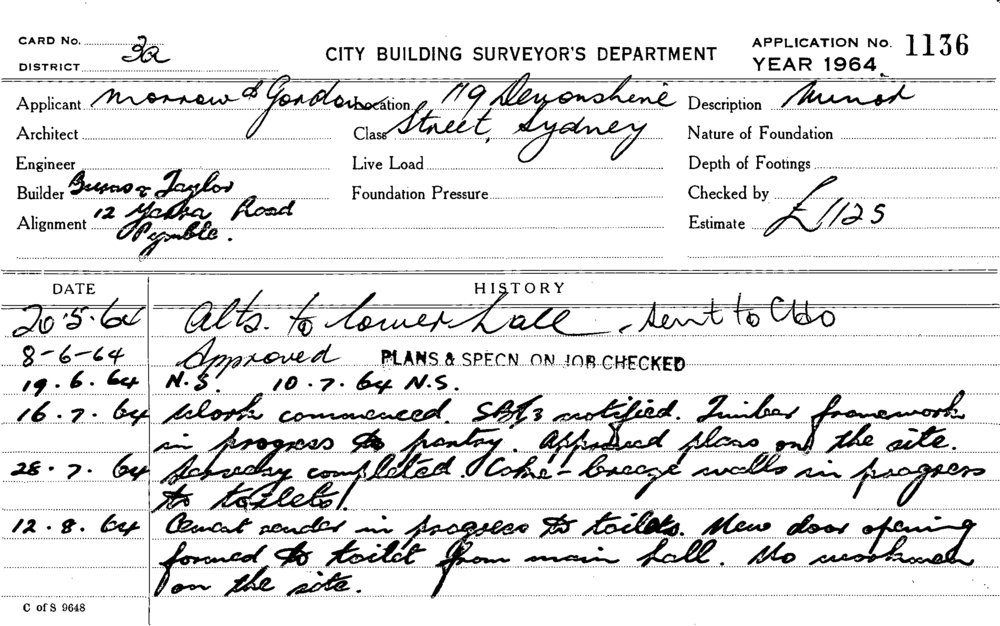 CARD No. 3a
DISTRICT
CITY BUILDING SURVEYOR'S DEPARTMENT
APPLICATION No. 1136
YEAR 1964
Applicant Morrow & Gordon
Location 119 Devonshire
Description Minor
Architect
Class Street, Sydney
Nature of Foundation
Engineer
Live Load
Depth of Footings
Builder & Taylor
Foundation Pressure
Checked by
Alignment 12 Yarra Road
Pymble.
Estimate £1125
DATE HISTORY
20.5.64 Alts. to lower hall - sent to
8-6-64 Approved PLANS & SPECN. ON JOB CHECKED
19.6.64 N.S. 10.7.64 N.S.
16.7.64 Work commenced. notified. Timber framework
in progress to pantry. Approved plans on the site.
28.7.64 completed. Coke-breeze walls in progress
to toilets.
12.8.64 Cement render in progress to toilets. New door opening
formed to toilet from main hall. No workmen
on the site.
C of S 9648